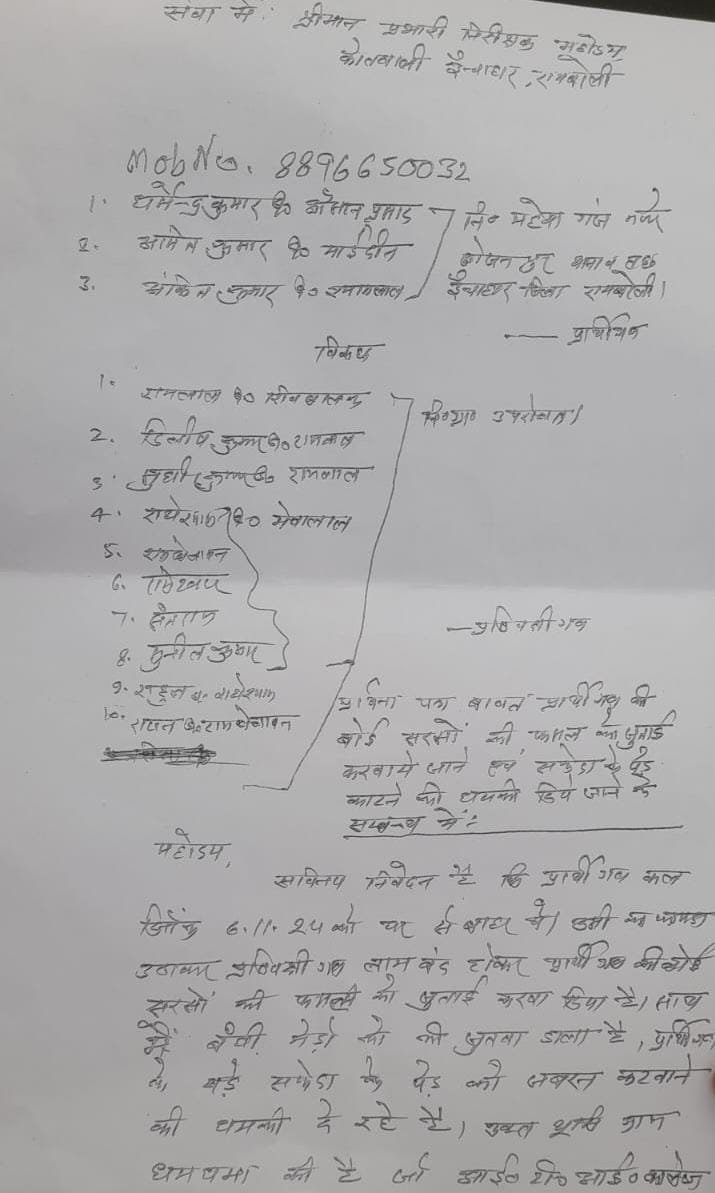 सेवा में: श्रीमान प्रभारी निरीक्षक महोदय
कोतवाली ऊँचाहार, रायबरेली
Mob No. 8896650032
1. धर्मेन्द्र कुमार S/o प्रसाद
2. कुमार S/o माईदीन
3. अंकित कुमार S/o श्यामलाल
नि० गंज मजरे
थाना व
ऊँचाहार जिला रायबरेली।
— प्रार्थीगण
विरुद्ध
1. रामलाल S/o शिवबालक
2. दिलीप कुमार S/o रामलाल
3. सुधीर कुमार S/o रामलाल
4. राधेश्याम S/o मेवालाल
5. रामखेलावन
6. रामेश्वर
7.
8. सुनील कुमार
9. राहुल S/o राधेश्याम
10. राजन S/o रामखेलावन
नि०गण उपरोक्त।
— प्रतिपक्षीगण
प्रार्थना पत्र बावत प्रार्थीगण की
बोई सरसों की फसल को जुताई
करवाये जाने एवं सफेदा के पेड़
काटने की धमकी दिये जाने के
सम्बन्ध में:
महोदय,
सविनय निवेदन है कि प्रार्थीगण कल
दिनाँक 6.11.24 को घर से बाहर थे। उसी का फायदा
उठाकर प्रतिपक्षीगण लामबंद होकर प्रार्थीगण की बोई
सरसों की फसल को जुताई करवा दिया है। साथ
में बंधी मेड़ों को भी जुतवा डाला है, प्रार्थीगण
के बड़े सफेदा के पेड़ को जबरन कटवाने
की धमकी दे रहे है। उक्त भूमि ग्राम
धमधमा की है जो आई० टी० आई० कालेज